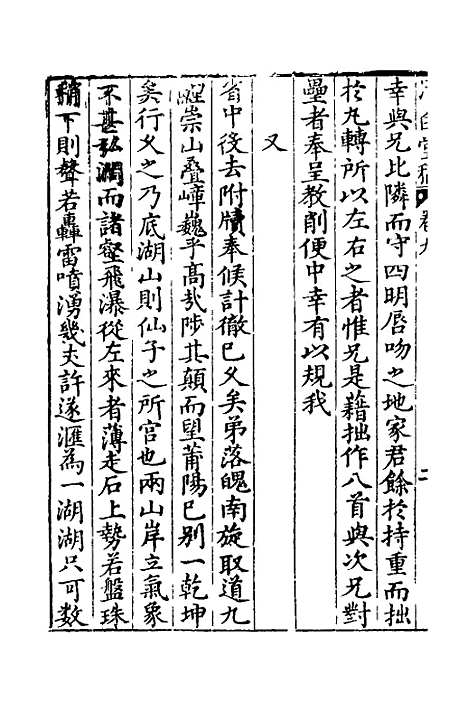 幸與兄比隣而守四明唇吻之地家君餘於持重而拙
於九轉所以左右之者惟兄是藉拙作八首與次兄對
壘者奉呈教削便中幸有以規我
又
省中後去附牘奉候計徹已乆矣弟落魄南旋取道九
鯉崇山叠嶂巍乎髙㢤陟其顛而望莆陽已别一乾坤
矣行乆之乃底湖山則仙子之所官也兩山岸立氣象
不甚弘濶而諸壑飛瀑從左來者薄走石上勢若盤珠
稍下則聲若轟雷噴湧幾丈許遂滙為一湖湖只可数